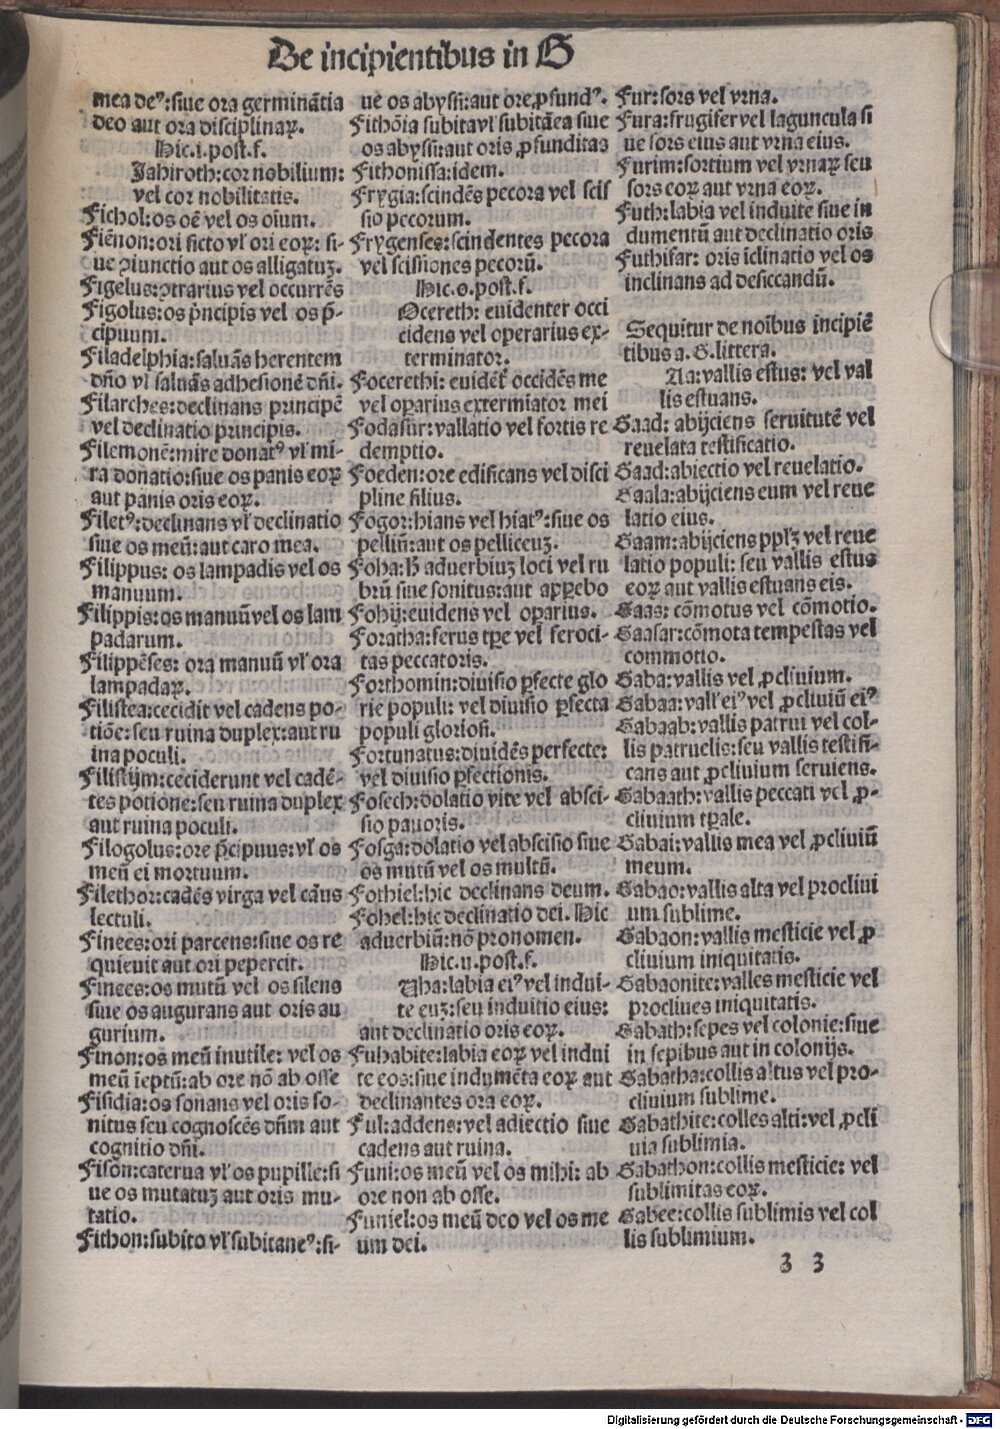 De incipientibus in G
mea deꝰ:siue ora germinātia
deo aut ora disciplinaꝝ.
Hic.i.post.f.
Iahiroth:cor nobilium:
vel cor nobilitatis.
Fichol:os oē vel os oium.
Fiēnon:ori ficto vl' ori eoꝝ: si-
ue ꝯiunctio aut os alligatuꝫ.
Figelus:ꝯtrarius vel occurrēs
Figolus:os p̄ncipis vel os p̄-
cipuum.
Filadelphia:saluās herentem
dn̄o vl' saluās adhesionē dn̄i.
Filarches:declinans principē
vel declinatio principis.
Filemonē:mire donatꝰ vl' mi-
ra donatio:siue os panis eoꝝ
aut panis oris eoꝝ.
Filetꝰ:declinans vl' declinatio
siue os meū:aut caro mea.
Filippus: os lampadis vel os
manuum.
Filippis:os manuū vel os lam
padarum.
Filippēses: ora manuū vl' ora
lampadaꝝ.
Filistea:cecidit vel cadens po-
tiōe:seu ruina duplex:aut ru
ina poculi.
Filistijm:ceciderunt vel cadē-
tes potione:seu ruina duplex
aut ruina poculi.
Filogolus:ore p̄cipuus:vl' os
meū ei mortuum.
Filethor:cadēs virga vel cān̄s
lectuli.
Finees:ori parcens:siue os re
quieuit aut ori pepercit.
Finees:os mutū vel os silens
siue os augurans aut oris au
gurium.
Finon:os meū inutile: vel os
meū īeptū:ab ore nō ab osse
Fisidia:os sonans vel oris so-
nitus seu cognoscēs dn̄m aut
cognitio dn̄i.
Fison:caterua vl' os pupille:si
ue os mutatuꝫ aut oris mu-
tatio.
Fithon:subito vl' subitaneꝰ:si-
ue os abyssi:aut ore ꝓfundꝰ.
Fithōia subita vl' subitāea siue
os abyssi:aut oris ꝓfunditas
Fithonissa:idem.
Frygia:scindēs pecora vel scis
sio pecorum.
Frygenses:scindentes pecora
vel scissiones pecorū.
Hic.o.post.f.
Ocereth: euidenter occi
cidens vel operarius ex-
terminator.
Focerethi: euidēt' occidēs me
vel oꝑarius extermiator mei
Fodasur:vallatio vel fortis re
demptio.
Foeden:ore edificans vel disci
pline filius.
Fogor:hians vel hiatꝰ:siue os
pelliū:aut os pelliceuꝫ.
Foha:h̄ aduerbiuꝫ loci vel ru
brū siue sonitus:aut apꝑebo
Fohij:euidens vel oꝑarius.
Foratha:ferus tꝑe vel feroci-
tas peccatoris.
Forthomin:diuisio ꝑfecte glo
rie populi: vel diuisio ꝑfecta
populi gloriosi.
Fortunatus:diuidēs perfecte:
vel diuisio ꝑfectionis.
Fosech:dolatio vite vel absci-
sio pauoris.
Fosga:dolatio vel abscisio siue
os mutū vel os multū.
Fothiel:hic declinans deum.
Fohel:hic declinatio dei. Hic
aduerbiū:nō pronomen.
Hic.u.post.f.
Uha:labia eiꝰ vel indui-
te euꝫ:seu induitio eius:
aut declinatio oris eoꝝ.
Fuhabite:labia eoꝝ vel indui
te eos:siue indumēta eoꝝ aut
declinantes ora eoꝝ.
Ful:addens:vel adiectio siue
cadens aut ruina.
Funi:os meū vel os mihi: ab
ore non ab osse.
Funiel:os meū deo vel os me
um dei.
Fur:sors vel vrna.
Fura:frugifer vel laguncula si
ue sors eius aut vrna eius.
Furim:sortium vel vrnaꝝ seu
sors eoꝝ aut vrna eoꝝ.
Futh:labia vel induite siue in
dumentū aut declinatio oris
Futhifar: oris īclinatio vel os
inclinans ad desiccandū.
Sequitur de noībus incipiē
tibus a. G.littera.
Aa:vallis estus: vel val
lis estuans.
Gaad: abijciens seruitutē vel
reuelata testificatio.
Gaad:abiectio vel reuelatio.
Gaala:abijciens eum vel reue
latio eius.
Gaam:abijciens ppl'ꝫ vel reue
latio populi: seu vallis estus
eoꝝ aut vallis estuans eis.
Gaas: cōmotus vel cōmotio.
Gaasar:cōmota tempestas vel
commotio.
Gaba:vallis vel ꝓcliuium.
Gabaa:vall' eiꝰ vel ꝓcliuiū eiꝰ
Gabaab:vallis patrui vel col-
lis patruelis:seu vallis testifi-
cans aut ꝓcliuium seruiens.
Gabaath:vallis peccati vel ꝓ-
cliuium tꝑale.
Gabai:vallis mea vel ꝓcliuiū
meum.
Gabao:vallis alta vel procliui
um sublime.
Gabaon:vallis mesticie vel ꝓ
cliuium iniquitatis.
Gabaonite:valles mesticie vel
procliues iniquitatis.
Gabath:sepes vel colonie:siue
in sepibus aut in colonijs.
Gabatha:collis altus vel pro-
cliuium sublime.
Gabathite:colles alti:vel ꝓcli
uia sublimia.
Gabathon:collis mesticie: vel
sublimitas eoꝝ.
Gabee:collis sublimis vel col
lis sublimium.
3 3
Digitalisierung gefördert durch die Deutsche Forschungsgemeinschaft - DFG